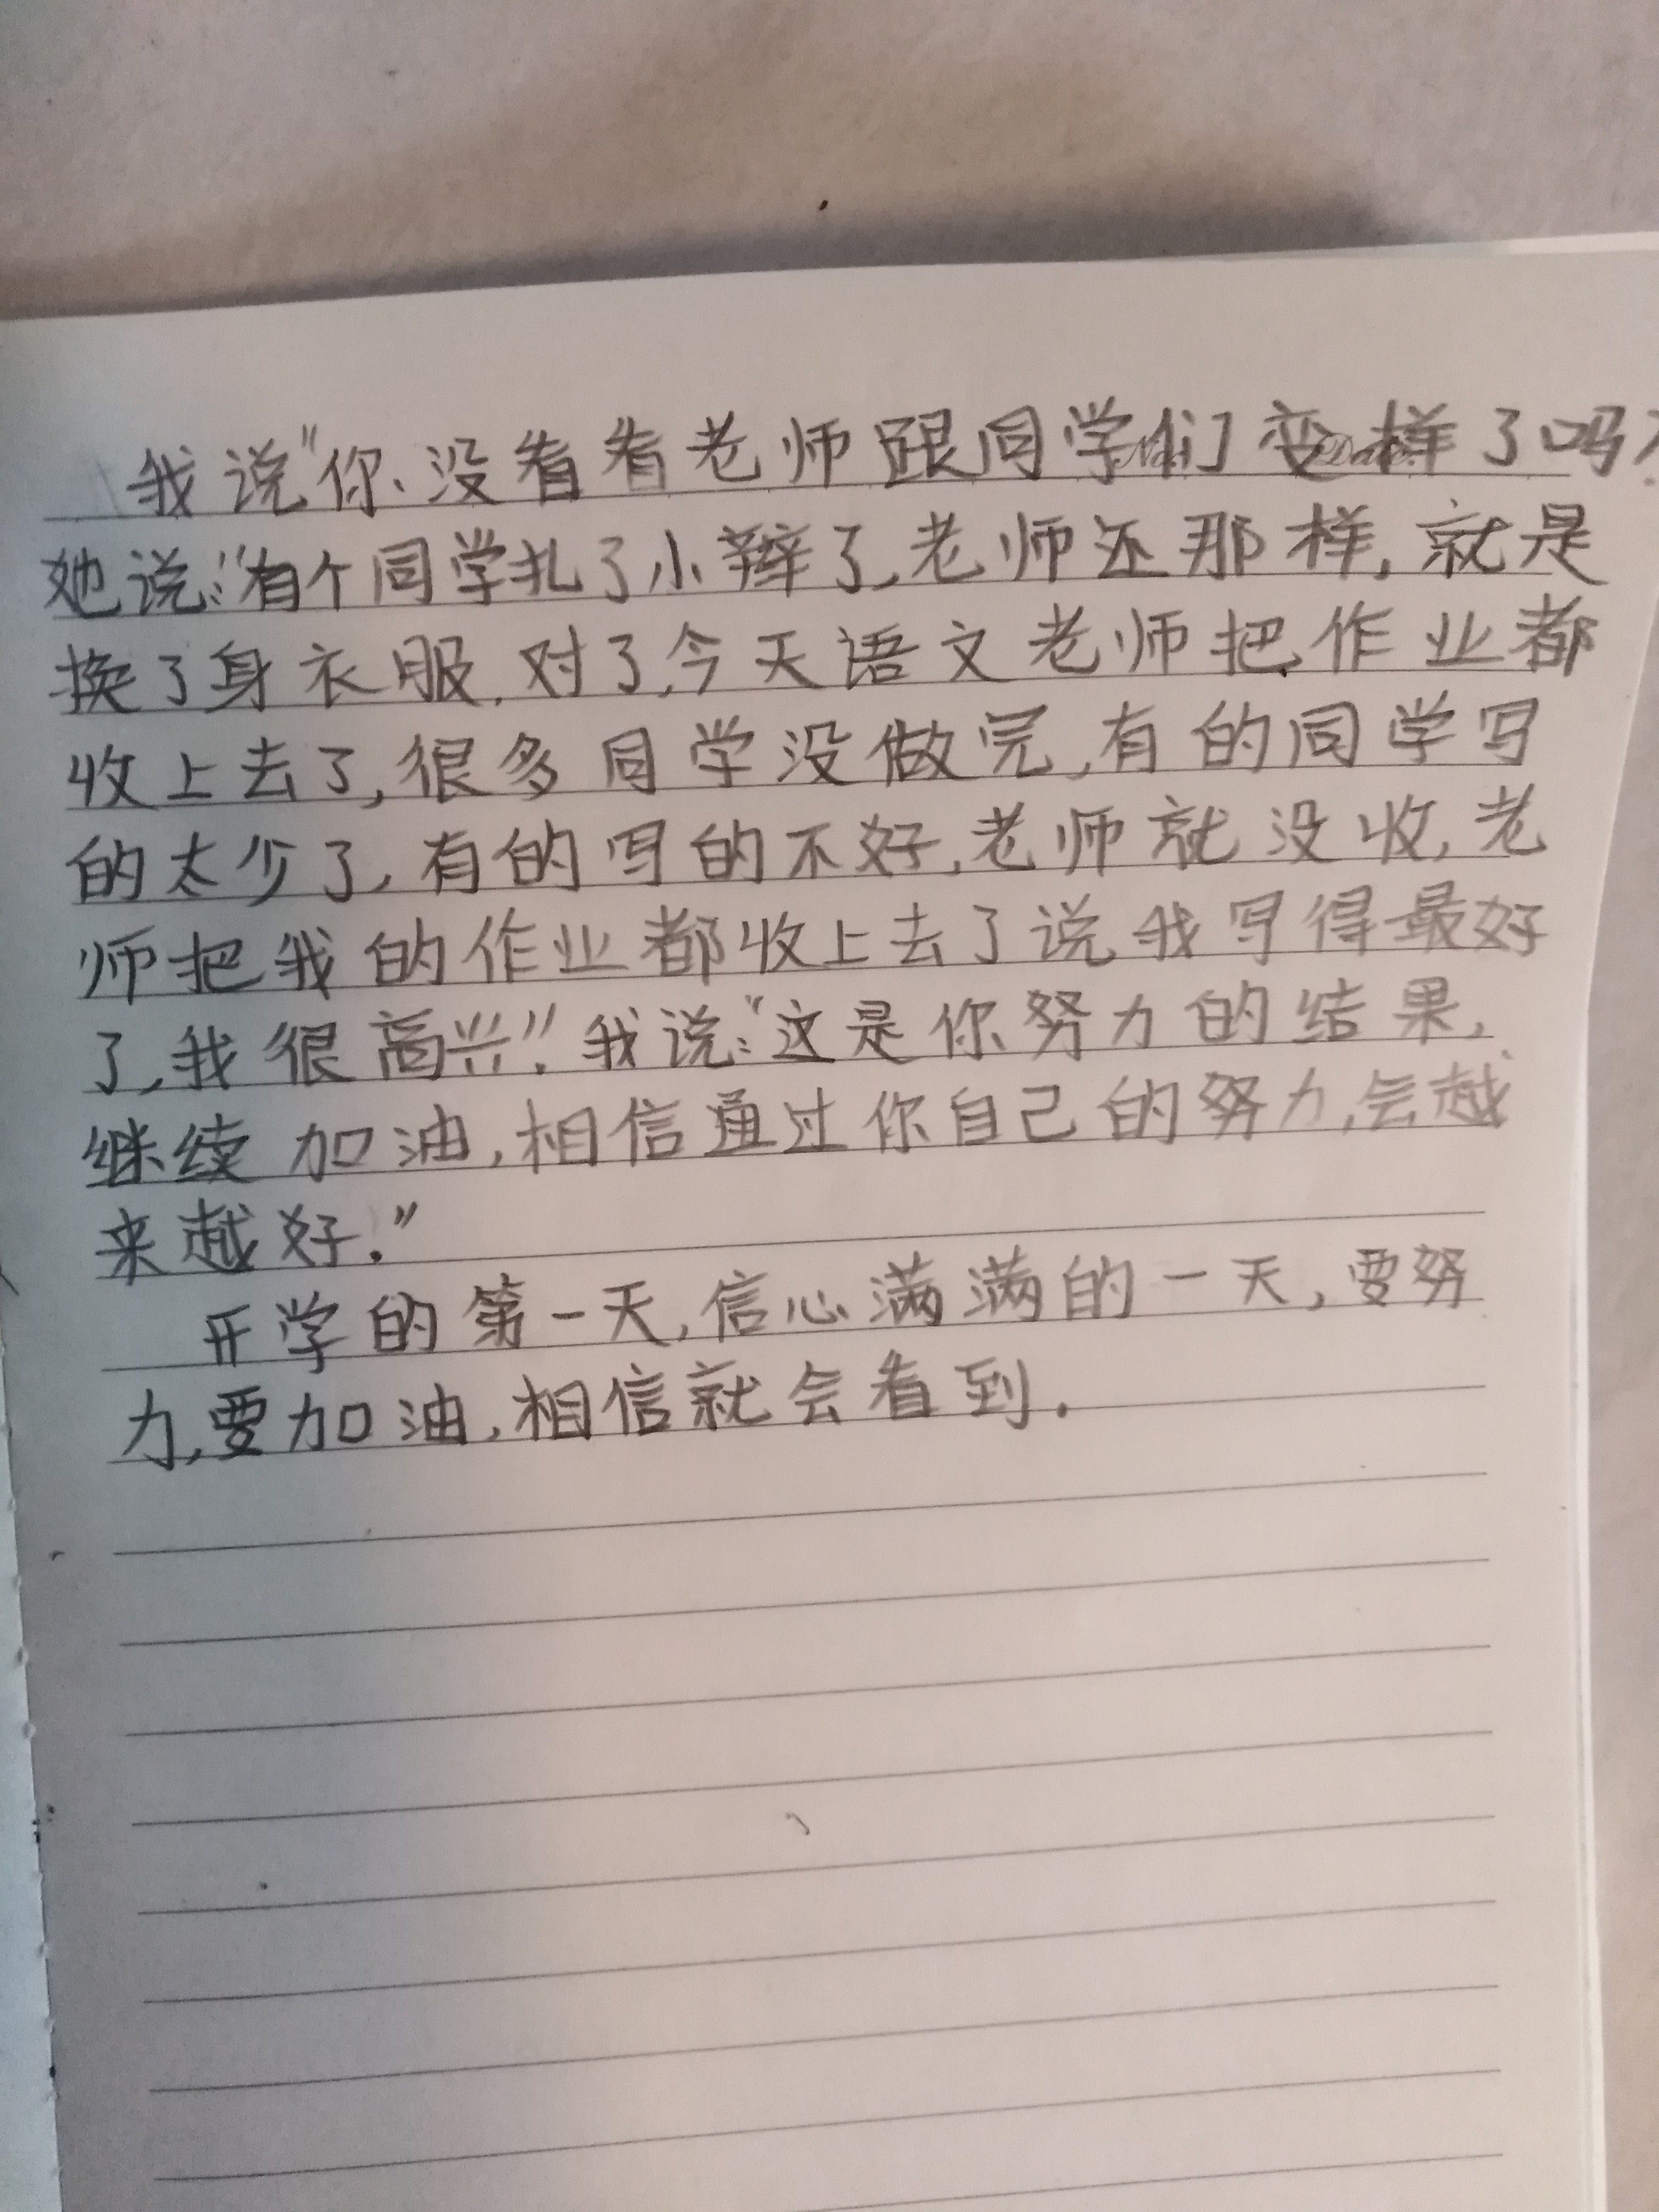 我说"你、没看看老师跟同学们变样了吗?
她说:"有个同学扎了小辫了,老师还那样,就是
换了身衣服.对了,今天语文老师把作业都
收上去了,很多同学没做完,有的同学写
的太少了,有的写的不好,老师就没收,老
师把我的作业都收上去了说我写得最好
了,我很高兴".我说:"这是你努力的结果,
继续加油,相信通过你自己的努力,会越
来越好."
开学的第一天,信心满满的一天,要努
力,要加油,相信就会看到.